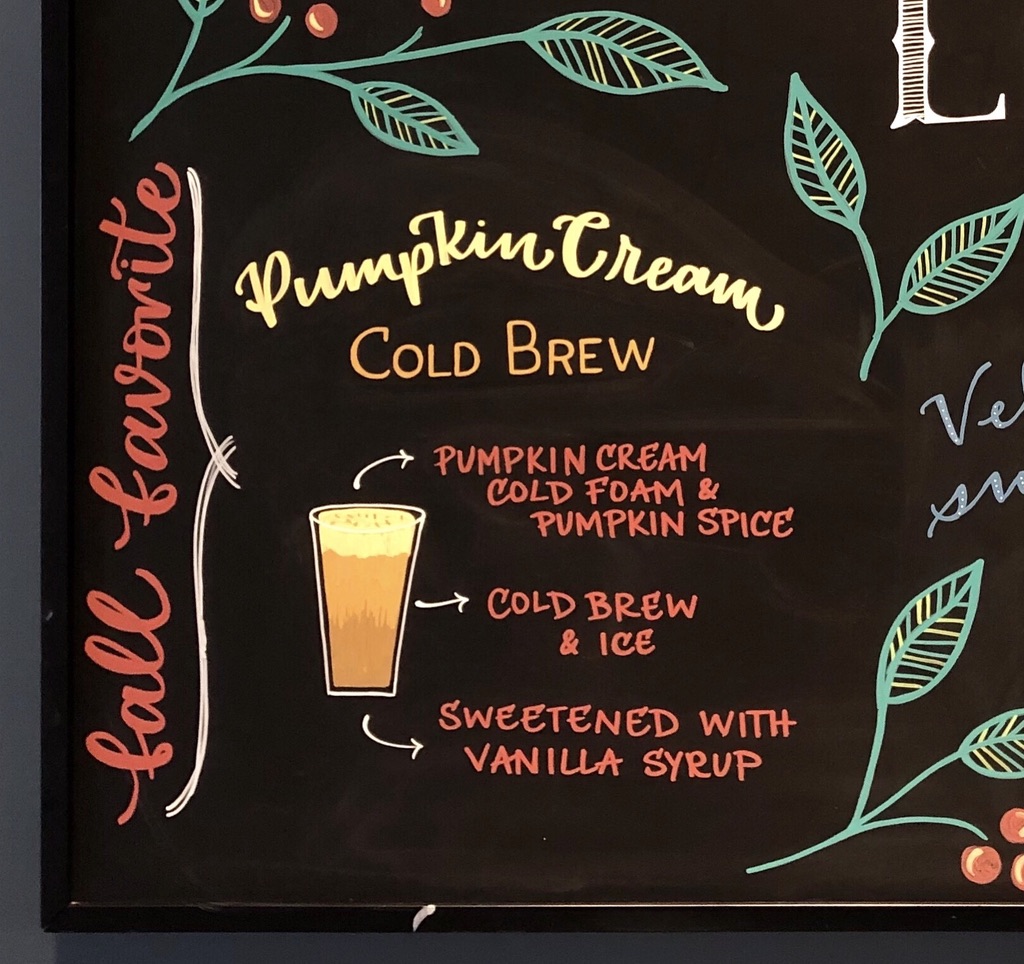 fall favorite
Pumpkin Cream
COLD BREW
PUMPKIN CREAM
COLD FOAM &
PUMPKIN SPICE
COLD BREW
& ICE
SWEETENED WITH
VANILLA SYRUP
L